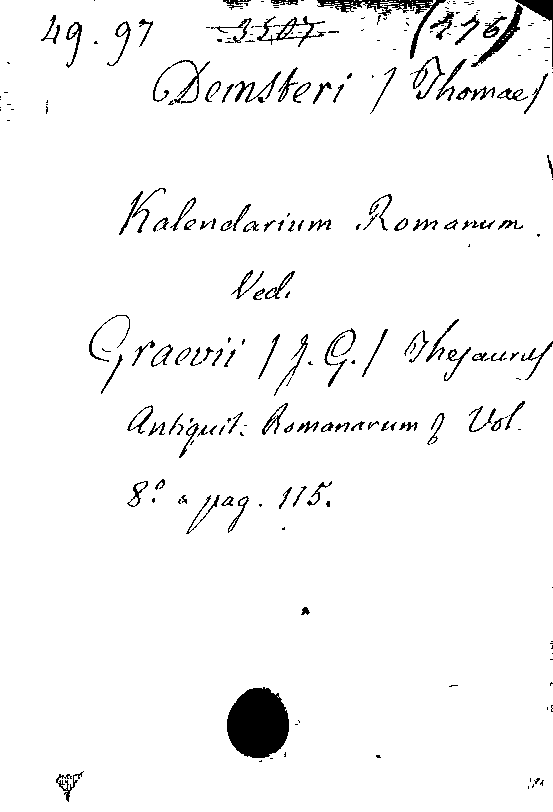 49.97 3507 (276)
Demsteri / Thomae/
Kalendarium Romanum.
Ved.
Graevii / J. G. / Thesaurus
Antiquit: Romanarum Vol.
8.° a pag. 115.